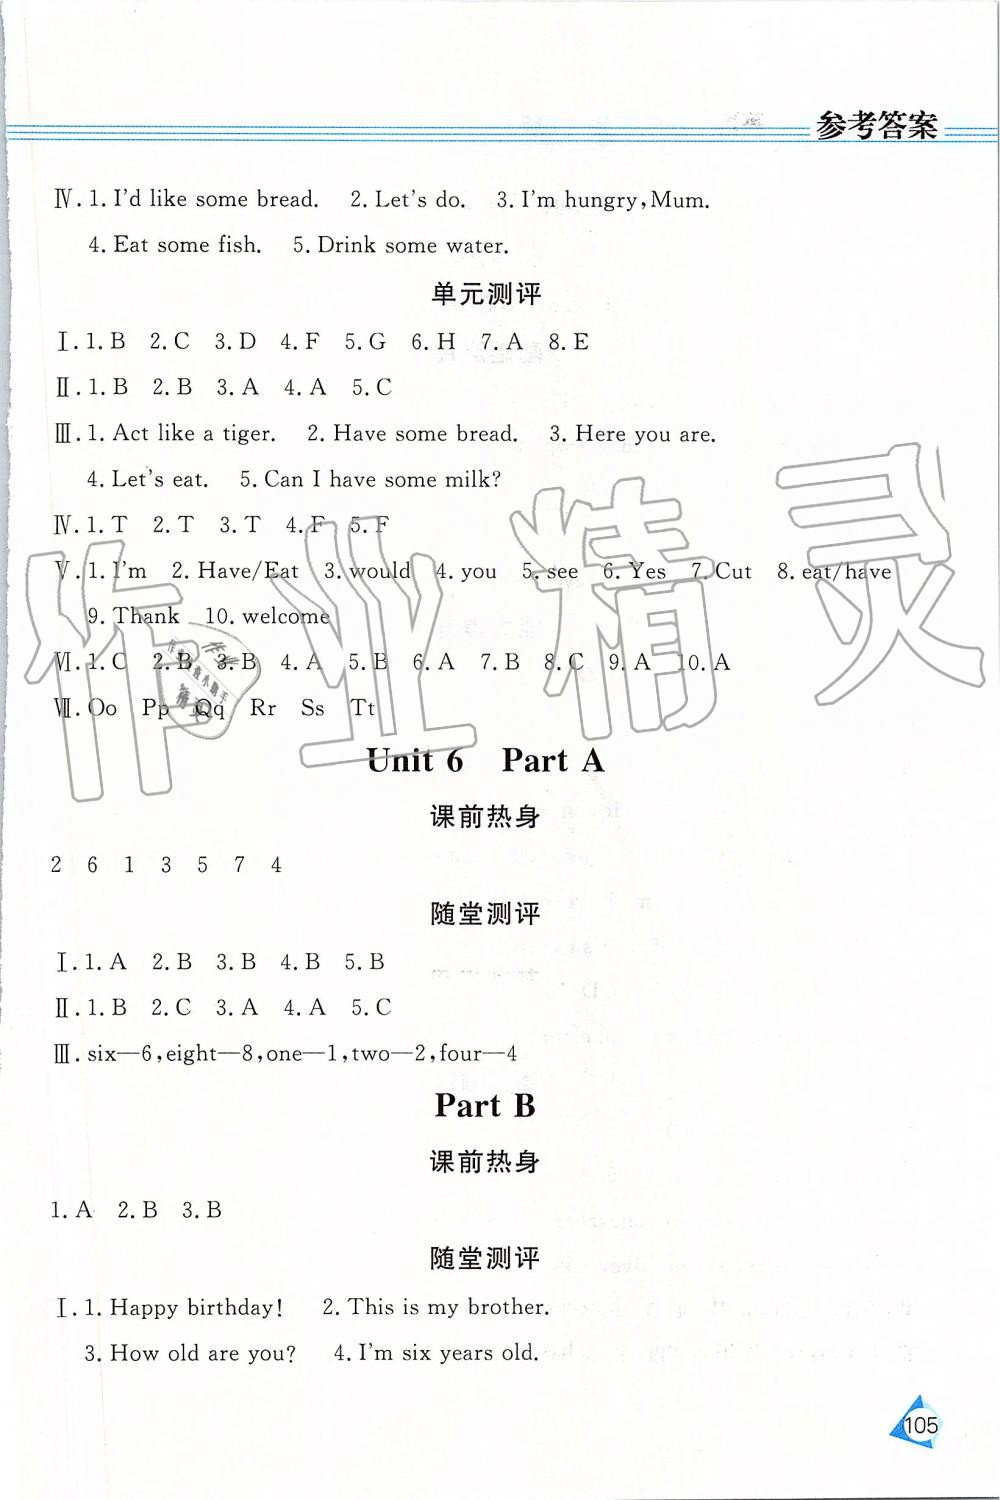 参考答案
Ⅳ. 1. I'd like some bread. 2. Let's do. 3. I'm hungry, Mum.
4. Eat some fish. 5. Drink some water.
单元测评
Ⅰ. 1. B 2. C 3. D 4. F 5. G 6. H 7. A 8. E
Ⅱ. 1. B 2. B 3. A 4. A 5. C
Ⅲ. 1. Act like a tiger. 2. Have some bread. 3. Here you are.
4. Let's eat. 5. Can I have some milk?
Ⅳ. 1. T 2. T 3. T 4. F 5. F
Ⅴ. 1. I'm 2. Have/Eat 3. would 4. you 5. see 6. Yes 7. Cut 8. eat/have
9. Thank 10. welcome
Ⅵ. 1. C 2. B 3. B 4. A 5. B 6. A 7. B 8. C 9. A 10. A
Ⅶ. Oo Pp Qq Rr Ss Tt
作业精灵
Unit 6 Part A
课前热身
2 6 1 3 5 7 4
随堂测评
Ⅰ. 1. A 2. B 3. B 4. B 5. B
Ⅱ. 1. B 2. C 3. A 4. A 5. C
Ⅲ. six—6, eight—8, one—1, two—2, four—4
Part B
课前热身
1. A 2. B 3. B
随堂测评
Ⅰ. 1. Happy birthday! 2. This is my brother.
3. How old are you? 4. I'm six years old.
105